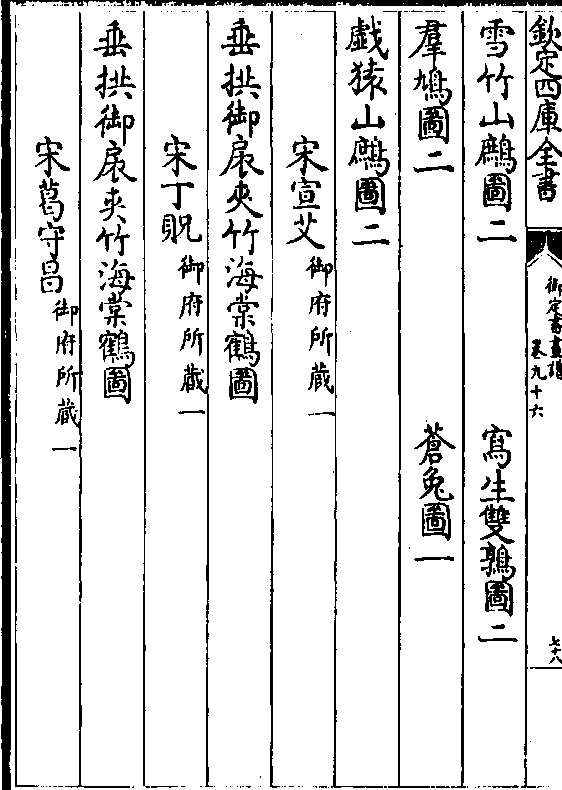 欽定四庫全書
御定書畫譜
卷九十六
七十八
雪竹山鷓圖二 寫生雙鶉圖二
羣鳩圖二 蒼兔圖一
戲猿山鷓圖二
宋宣艾御府所藏一
垂拱御扆夾竹海棠鶴圖
宋丁貺御府所藏一
垂拱御扆夾竹海棠鶴圖
宋葛守昌御府所藏一